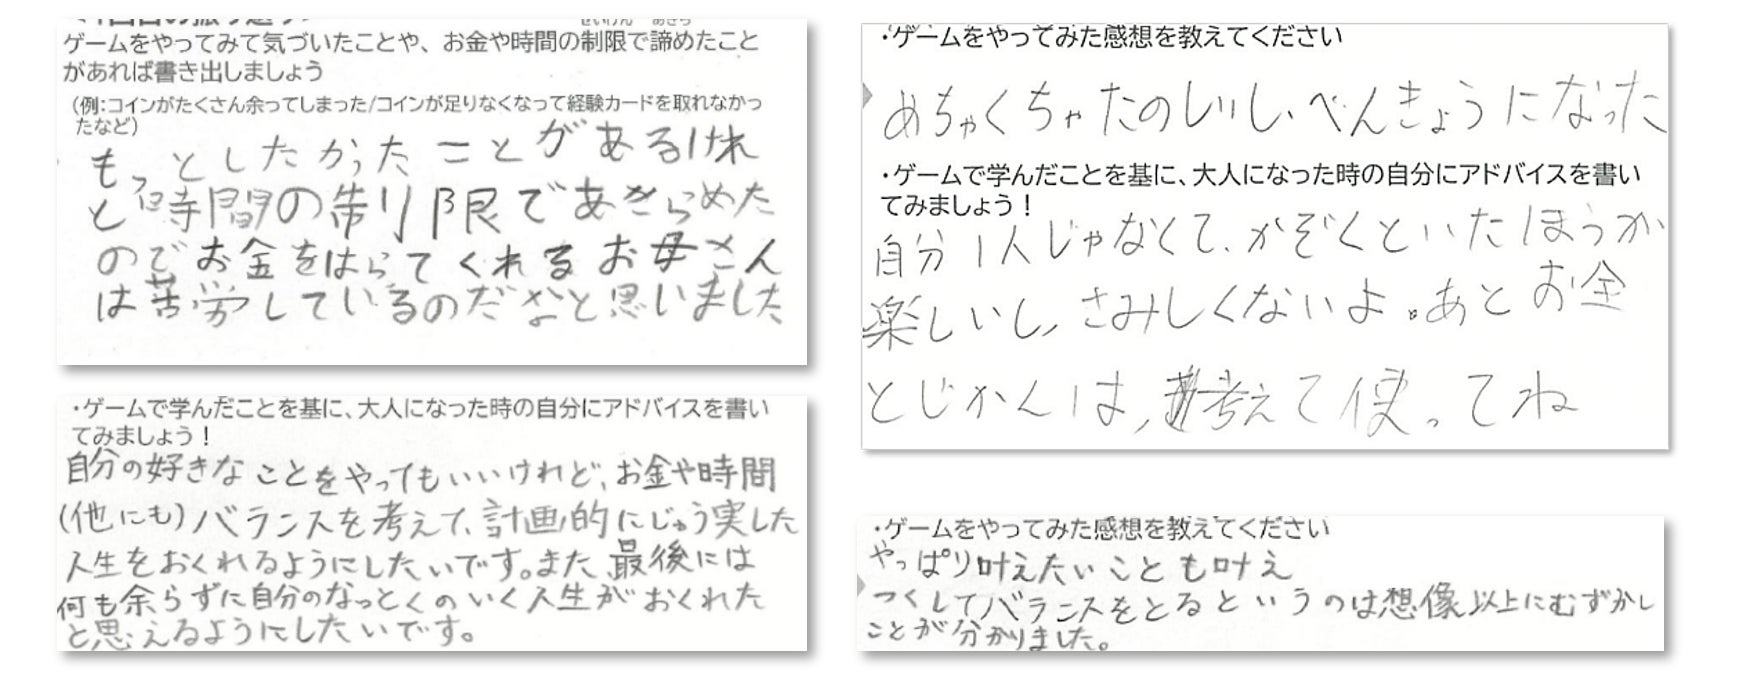 ゲームをやってみて気づいたことや、お金や時間の制限で諦めたこと
があれば書き出しましょう
（例：コインがたくさん余ってしまった/コインが足りなくなって経験カードを取れなかっ
たなど）
もっとしたかったことがあるけれ
ど時間の制限であきらめた
のでお金をはらってくれるお母さん
は苦労しているのだなと思いました
・ゲームで学んだことを基に、大人になった時の自分にアドバイスを書い
てみましょう！
自分の好きなことをやってもいいけれど、お金や時間
(他にも)バランスを考えて、計画的にじゅう実した
人生をおくれるようにしたいです。また最後には
何も余らずに自分のなっとくのいく人生がおくれた
と思えるようにしたいです。
・ゲームをやってみた感想を教えてください
めちゃくちゃたのしいし、べんきょうになった
・ゲームで学んだことを基に、大人になった時の自分にアドバイスを書い
てみましょう！
自分1人じゃなくて、かぞくといたほうが
楽しいし、さみしくないよ。あとお金
とじかんは、考えて使ってね
・ゲームをやってみた感想を教えてください
やっぱり叶えたいことも叶え
つくしてバランスをとるというのは想像以上にむずかし
ことが分かりました。